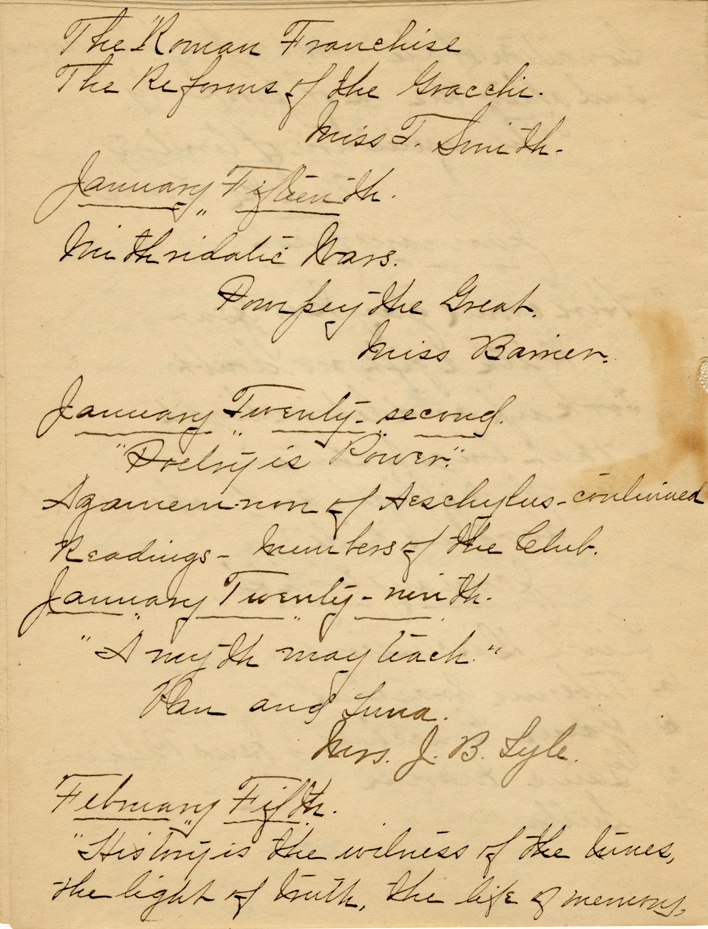 The Roman Franchise
The Reforms of the Gracchi.
Miss T. Smith.
January Fifteenth.
Mithridatic Wars.
Pompey the Great.
Miss Barrier.
January Twenty-second.
"Poetry is Power."
Agamemnon of Aeschylus-continued
Readings- Members of the Club.
January Twenty-ninth.
"A myth may teach."
Pan and Luna.
Mrs. J. B. Lyle.
February Fifth.
"History is the witness of the times,
the light of truth, the life of memory,